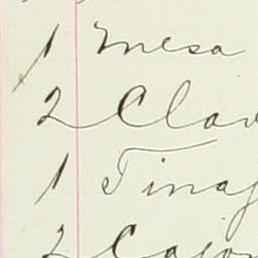 1 Mesa
2 Clav
1 Tinaj
2 Cajon